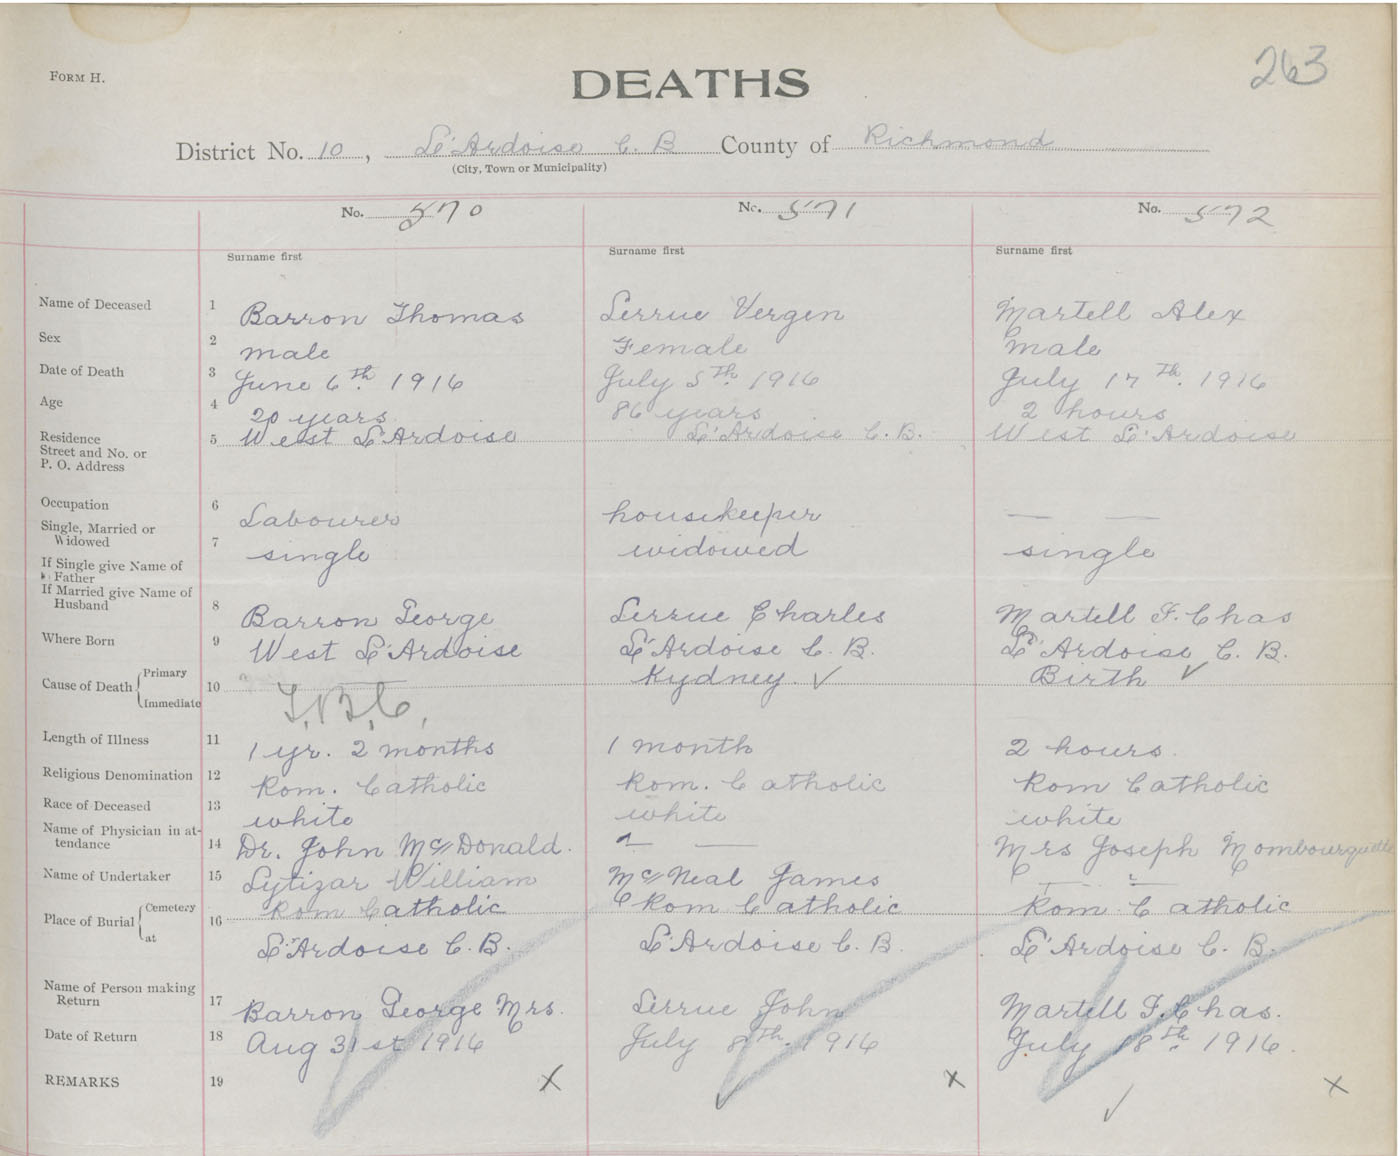 FORM H.
DEATHS
263
District No. 10, L'Ardoise C. B County of Richmond
(City, Town or Municipality)
No. 570 No. 571 No. 572
Surname first Surname first Surname first
Name of Deceased 1 Barron Thomas Serrue Vergen Martell Alex
Sex 2 male Female male
Date of Death 3 June 6th 1916 July 5th 1916 July 17th. 1916
Age 4 20 years 86 years 2 hours
Residence Street and No. or P. O. Address 5 West L'Ardoise L'Ardoise C.B. West L'Ardoise
Occupation 6 Labourer housekeeper — —
Single, Married or Widowed 7 single widowed single
If Single give Name of Father
If Married give Name of Husband 8 Barron George Serrue Charles Martell F. Chas
Where Born 9 West L'Ardoise L'Ardoise C. B. L'Ardoise C. B.
Cause of Death Primary Immediate 10 T.B.C. Kydney. ✓ Birth ✓
Length of Illness 11 1 yr. 2 months 1 month 2 hours.
Religious Denomination 12 Rom. Catholic Rom. Catholic Rom Catholic
Race of Deceased 13 white white white
Name of Physician in attendance 14 Dr. John McDonald. — Mrs Joseph Mombourquette
Name of Undertaker 15 Lytizar William McNeal James — —
Place of Burial Cemetery at 16 Rom Catholic Rom Catholic Rom Catholic
L'Ardoise C.B. L'Ardoise C. B. L'Ardoise C. B.
Name of Person making Return 17 Barron George Mrs. Serrue John Martell F. Chas.
Date of Return 18 Aug 31st 1916 July 8th. 1916 July 18th. 1916.
REMARKS 19 X X X